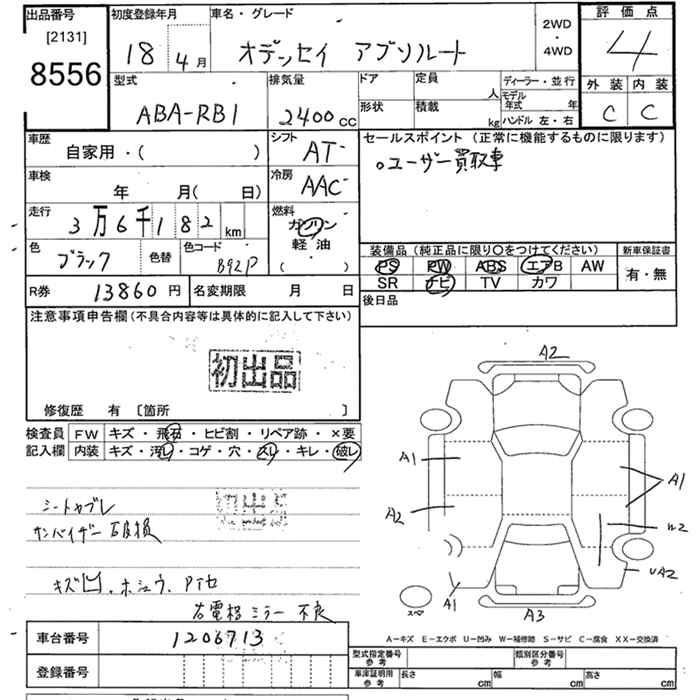 出品番号
[2131]
8556
初度登録年月
18年4月
車名・グレード
オデッセイ アブソルート
2WD
・
4WD
評価点
4
外装 内装
C C
型式
ABA-RB1
排気量
2400cc
ドア
定員
人
形状
積載
kg
ディーラー・並行
モデル
年式 年
ハンドル 左・右
車歴
自家用・( )
シフト
AT
セールスポイント (正常に機能するものに限ります)
○ユーザー買取車
車検
年 月( 日)
冷房
AAC
走行
3万6千182km
燃料
ガソリン
軽油
( ・ )
色
ブラック
色替
色コード
B92P
装備品(純正品に限り○をつけてください)
新車保証書
PS PW ABS エアB AW
SR ナビ TV カワ
有・無
R券
13860円
名変期限 月 日
後日品
注意事項申告欄(不具合内容等は具体的に記入して下さい)
初出品
修復歴 有 [箇所 ]
検査員
記入欄
FW キズ・飛石・ヒビ割・リペア跡・×要
内装 キズ・汚レ・コゲ・穴・スレ・キレ・破レ
シートヤブレ
初出品
サンバイザー破損
キズ凹、ホシュウ、PTセ
右電格ミラー不良
A2
A1
A1
A2
W2
UA2
A1
スペア
A3
A-キズ E-エクボ U-凹み W-補修跡 S-サビ C-腐食 XX-交換済
車台番号
1206713
登録番号
型式指定番号
参考
類別区分番号
参考
車庫証明用
参考
長さ cm
幅 cm
高さ cm